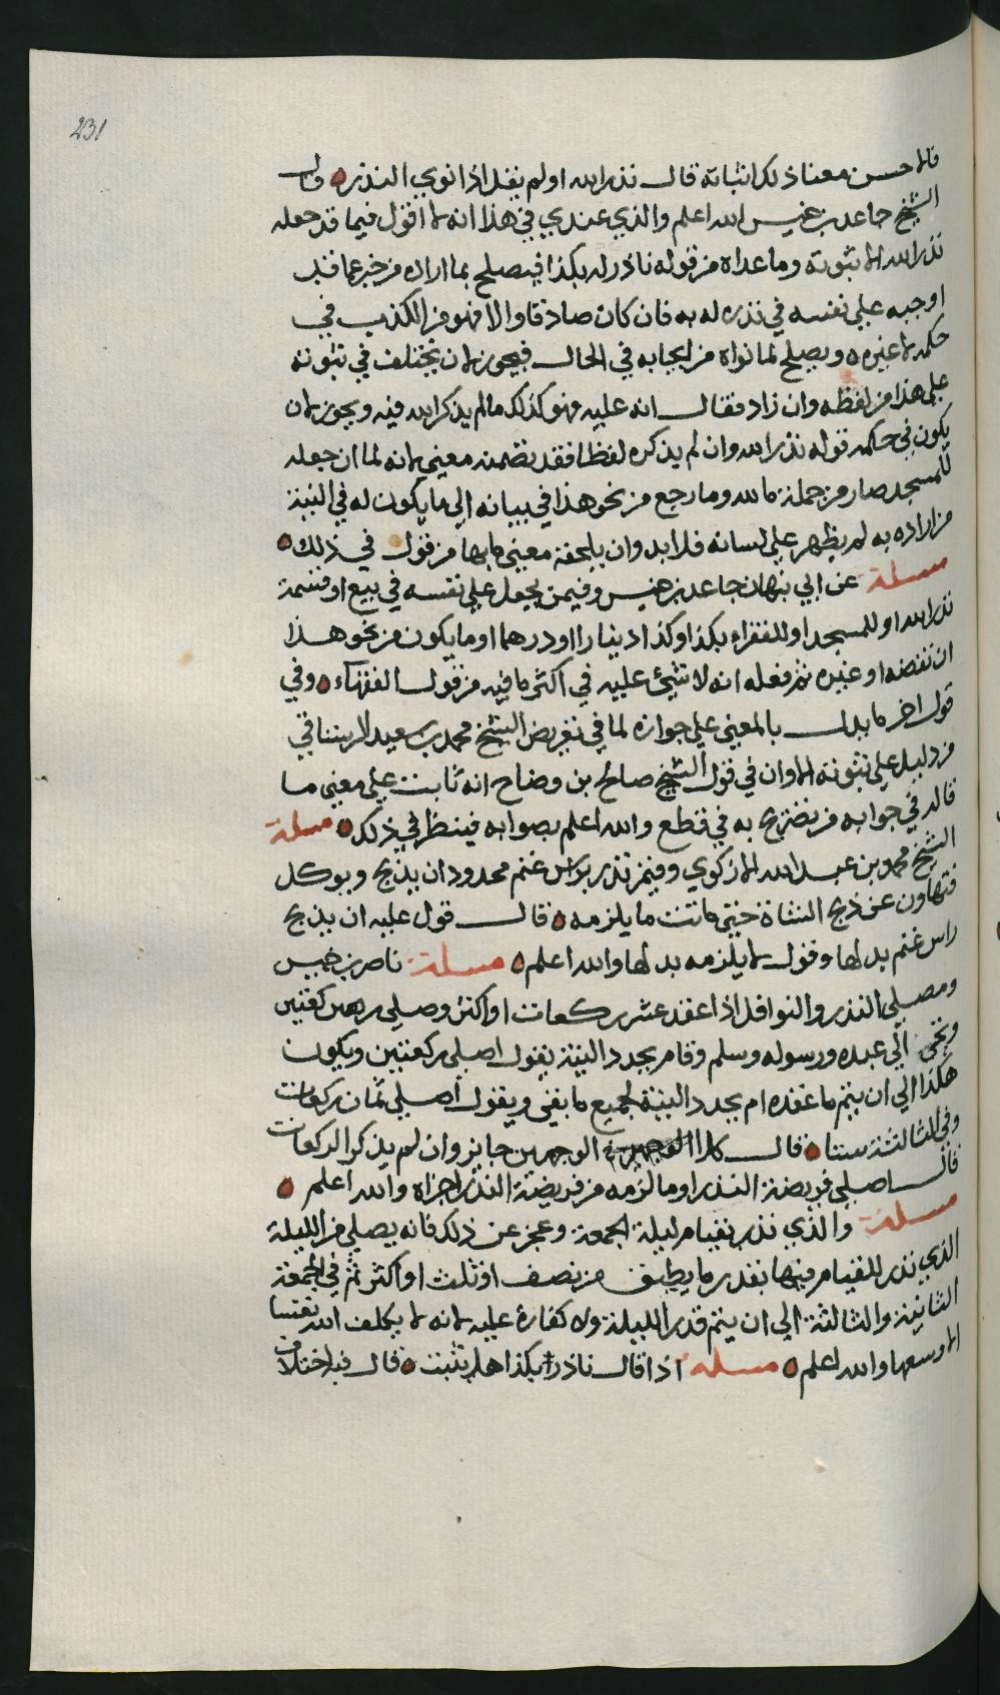 231
فالاحسن معنا ذلك اثباته قال نذر لله او لم يقل اذا نوي النذر ه قال
الشيخ جاعد بن خميس الله اعلم والذي عندي في هذا انه لا اقول فيما قد جعله
نذر لله الا ثبوته وما عداه من قوله ناذر له بكذا فيصلح بما اراده من خبر عما قد
اوجبه علي نفسه في نذره له به فان كان صادقا والا فهو من الكذب في
حكمه لا غيره ويصلح لما نواه من ايجابه في الحال فيجوز لان يختلف في ثبوته
علي هذا من لفظه وان زاد فقال انه عليه فهو كذلك ما لم يذكر الله فيه ويجوز لان
يكون في حكمه قوله نذر لله وان لم يذكره لفظا فقد تضمنه معني لانه لما ان جعله
للمسجد صار من جملة ما لله وما رجع من نحو هذا في بيانه الي ما يكون له في النية
من اراده به لم يظهر علي لسانه فلا بد وان يلحقه معني ما بها من قول في ذلك ه
مسئلة عن ابي نبهان جاعد بن خميس وفيمن يجعل علي نفسه في بيع او قسمة
نذر لله او للمسجد او للفقراء بكذا وكذا دينارا او درهما او ما يكون من نحو هذا
ان نقضه او غيره ثم فعله انه لا شيئ عليه في اكثر ما فيه من قول الفقهآء ه وفي
قول اخر ما يدل بالمعني علي جوازه لما في تعريض الشيخ محمد بن سعيد الريستاقي
من دليل علي ثبوته الا وان في قول الشيخ صالح بن وضاح انه ثابت علي معني ما
قاله في جوابه من تصريح به في قطع والله اعلم بصوابه فينظر في ذلك ه مسئلة
الشيخ محمد بن عبد الله الازكوي وفيمن نذر براس غنم محدود ان يذبح ويوكل
فتهاون عن ذبح الشاة حتي ماتت ما يلزمه ه قال قول عليه ان يذبح
راس غنم بدلها وقول لا يلزمه بدلها والله اعلم ه مسئلة ناصر بن خميس
ومصلي النذر والنوافل اذا عقد عشر ركعات او اكثر وصلي ركعتين
وتحي الي عبده ورسوله وسلم وقام يجدد النية يقول اصلي ركعتين ويكون
هكذا الي ان يتم ما عقده ام يجدد النية لجميع ما بقي ويقول اصلي ثمان ركعات
وفي الثالثة ستا ه قال كلا الوجهين جايز وان لم يذكر الركعات
قال اصلي فريضة النذر او ما لزمه من فريضة النذر اجزاه والله اعلم ه
مسئلة والذي نذر بقيام ليلة الجمعة وعجز عن ذلك فانه يصلي من الليلة
الذي نذر للقيام فيها بقدر ما يطيق من نصف او ثلث او اكثر ثم في الجمعة
الثانية والثالثة الي ان يتم قدر الليلة ولا كفارة عليه لانه لا يكلف الله نفسا
الا وسعها والله اعلم ه مسئلة اذا قال ناذر بكذا هل يثبت ه قال فيه اختلاف